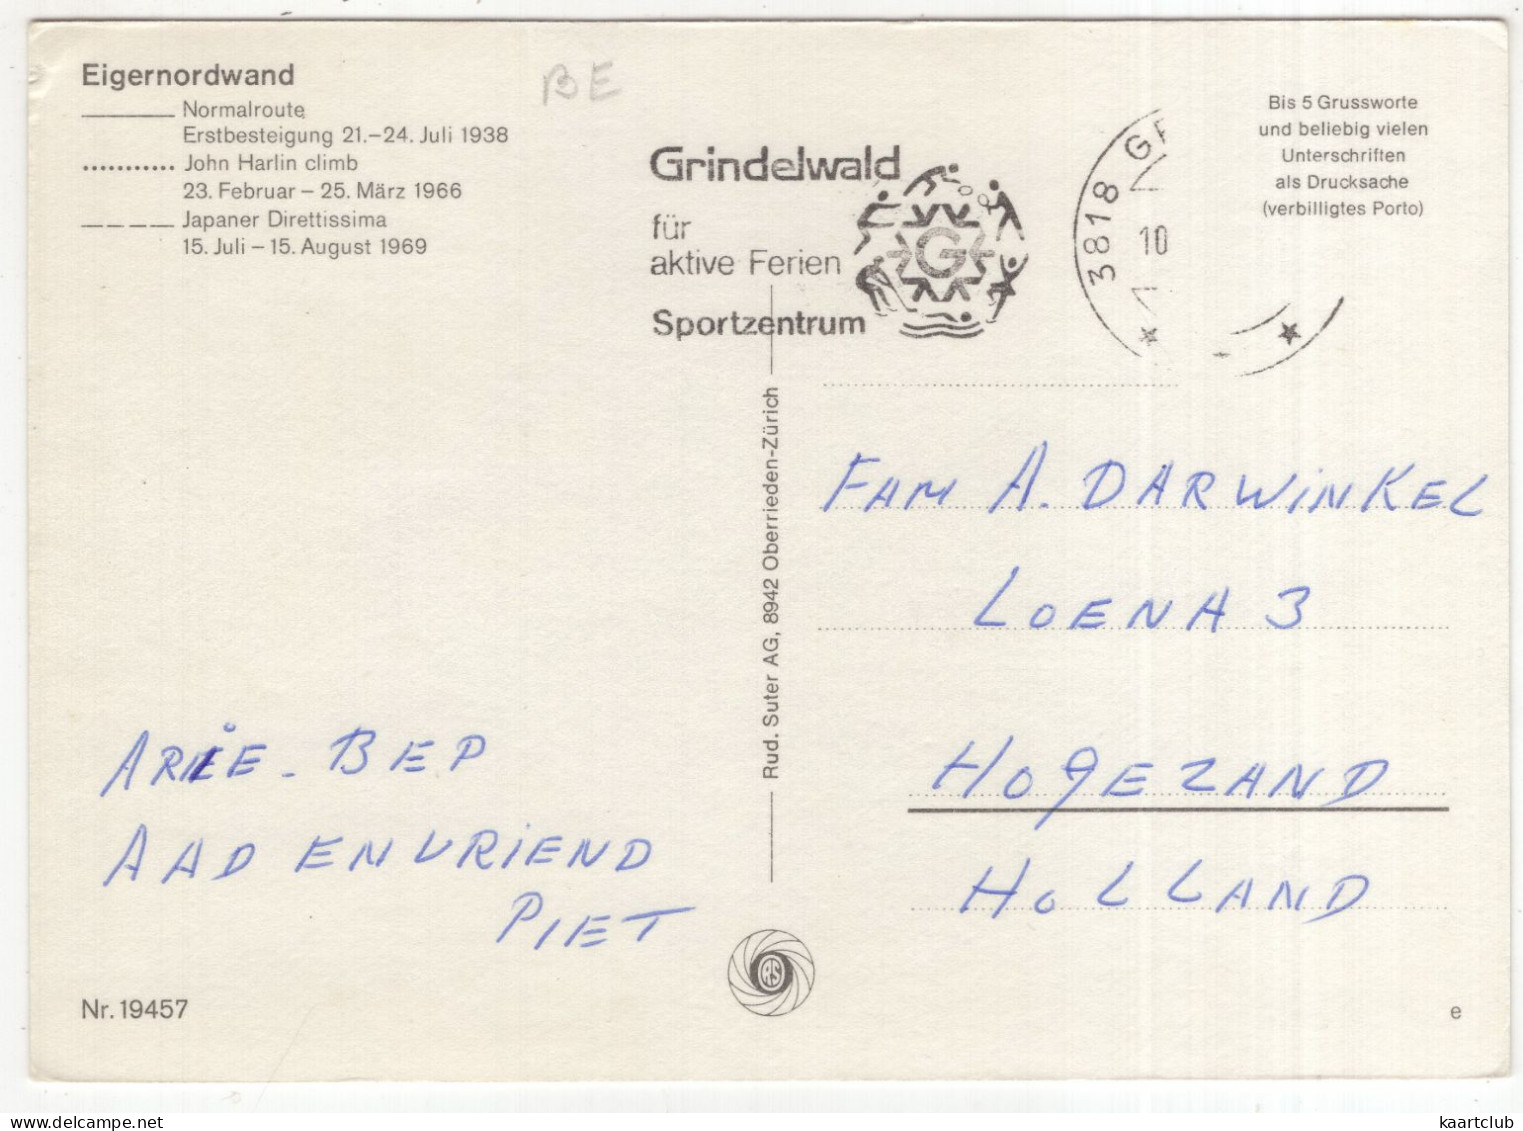 Eigernordwand
Normalroute
Erstbesteigung 21.–24. Juli 1938
John Harlin climb
23. Februar – 25. März 1966
Japaner Direttissima
15. Juli – 15. August 1969
BE
Grindelwald
für
aktive Ferien
Sportzentrum
G
3818 G
10
Bis 5 Grussworte
und beliebig vielen
Unterschriften
als Drucksache
(verbilligtes Porto)
Rud. Suter AG, 8942 Oberrieden-Zürich
FAM A. DARWINKEL
LOENA 3
HOGEZAND
HOLLAND
ARIE - BEP
AAD EN VRIEND
PIET
RS
Nr. 19457
e
kaartclub
www.delcampe.net